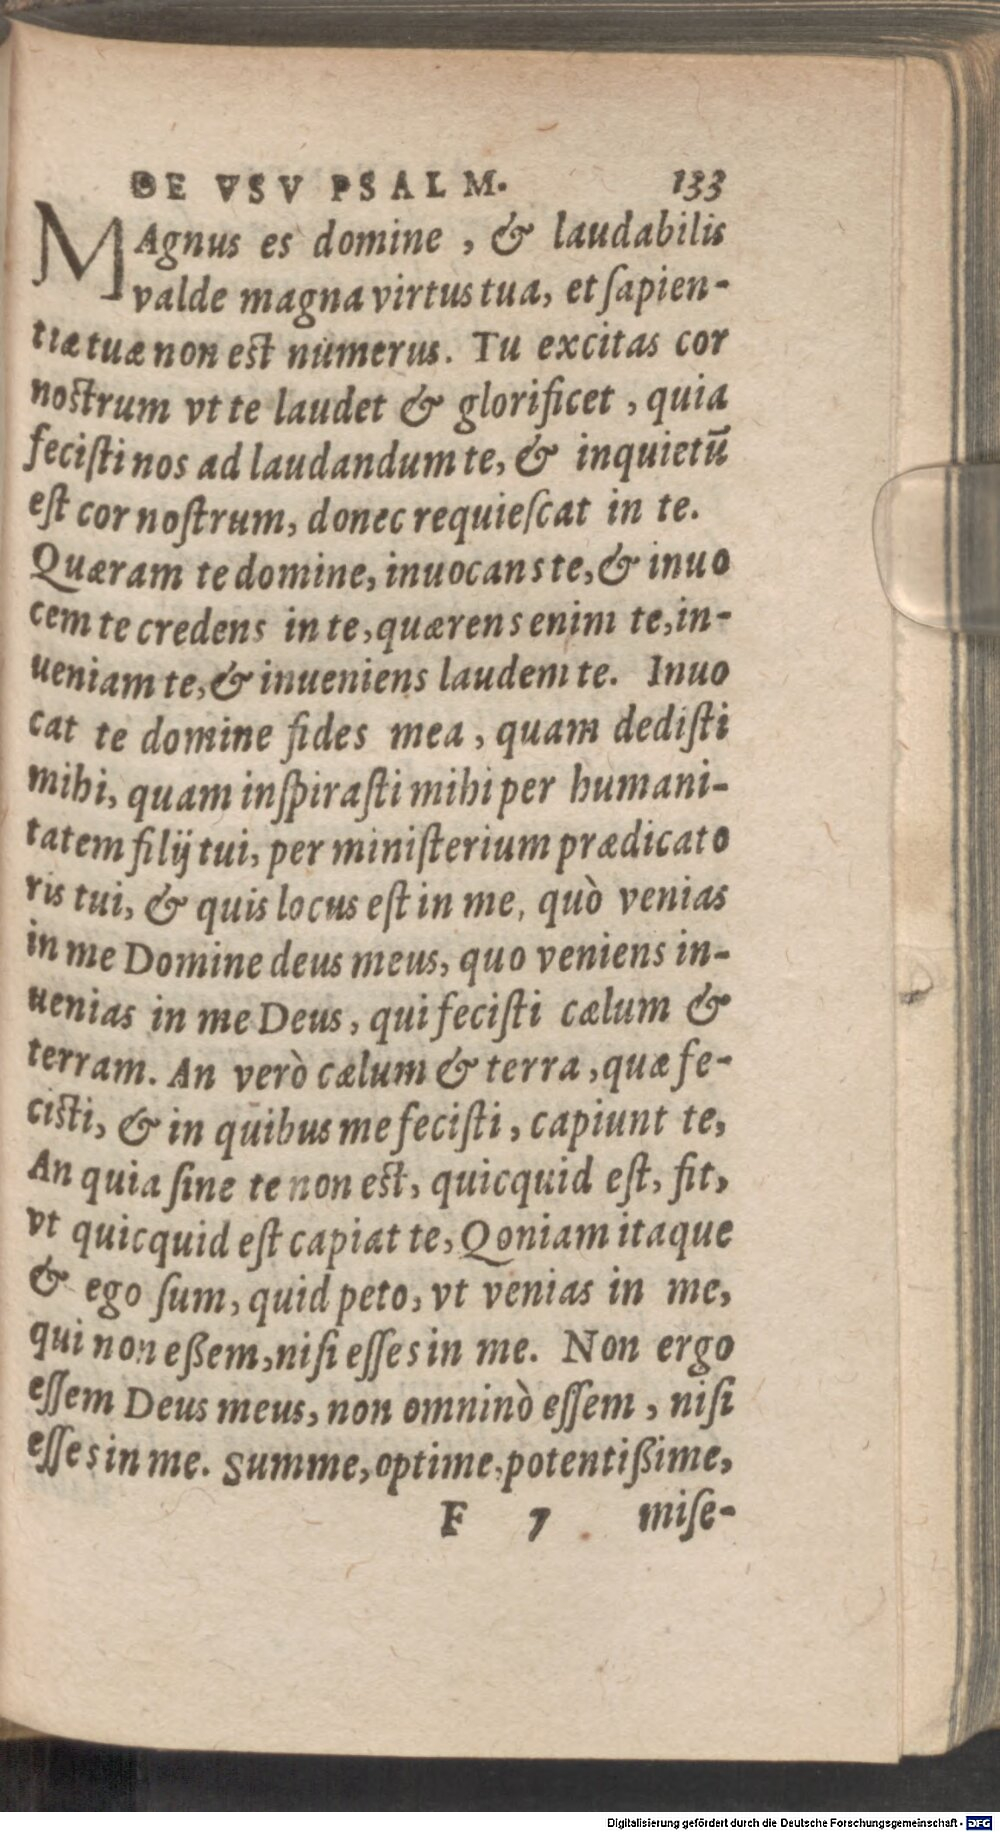 DE VSV PSALM. 133
MAgnus es domine, & laudabilis
valde magna virtus tua, et ſapien-
tiæ tuæ non est numerus. Tu excitas cor
nostrum vt te laudet & glorificet, quia
feciſti nos ad laudandum te, & inquietū
eſt cor noſtrum, donec requieſcat in te.
Quæram te domine, inuocans te, & inuo
cem te credens in te, quærens enim te, in-
ueniam te, & inueniens laudem te. Inuo
cat te domine fides mea, quam dediſti
mihi, quam inſpiraſti mihi per humani-
tatem filij tui, per miniſterium prædicato
ris tui, & quis locus eſt in me, quò venias
in me Domine deus meus, quo veniens in-
uenias in me Deus, qui feciſti cælum &
terram. An verò cælum & terra, quæ fe-
cisti, & in quibus me feciſti, capiunt te,
An quia ſine te non est, quicquid eſt, fit,
vt quicquid eſt capiat te, Qoniam itaque
& ego ſum, quid peto, vt venias in me,
qui non eßem, niſi eſſes in me. Non ergo
eſſem Deus meus, non omninò eſſem, niſi
eſſes in me. Summe, optime, potentißime,
F 7 miſe-
Digitalisierung gefördert durch die Deutsche Forschungsgemeinschaft - DFG